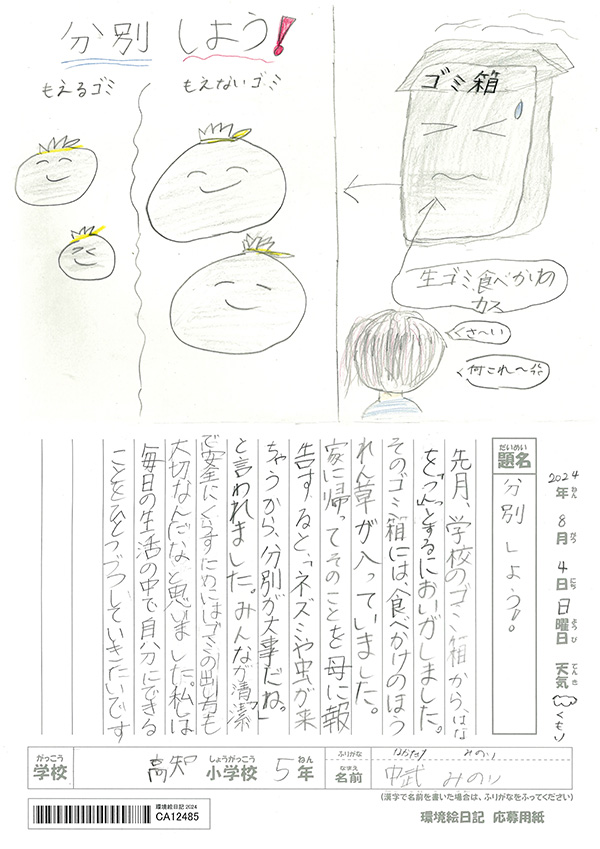 分別 しよう!
もえるゴミ
もえないゴミ
ゴミ箱
生ゴミ、食べかけの
カス
くさ〜い
何これ〜
2024年ねん 8月がつ 4日にち 日曜日ようび 天気てんき くもり
だいめい
題名
分別しよう!
先月、学校のゴミ箱から、はな
をつ〝んとするにおいがしました。
そのゴミ箱には、食べかけのほう
れん草が入っていました。
家に帰ってそのことを母に報
告すると、「ネズミや虫が来
ちゃうから、分別が大事だね。」
と言われました。みんなが清潔
で安全にくらすためにはゴミの出し方も
大切なんだな、と思いました。私は
毎日の生活の中で自分にできる
ことをひとつづつしていきたいです
がっこう
学校
高知
しょうがっこう
小学校
5
ねん
年
ふりがな
みのり
なまえ
名前
中武 みのり
(漢字で名前を書いた場合は、ふりがなをふってください)
環境絵日記2024
CA12485
環境絵日記 応募用紙